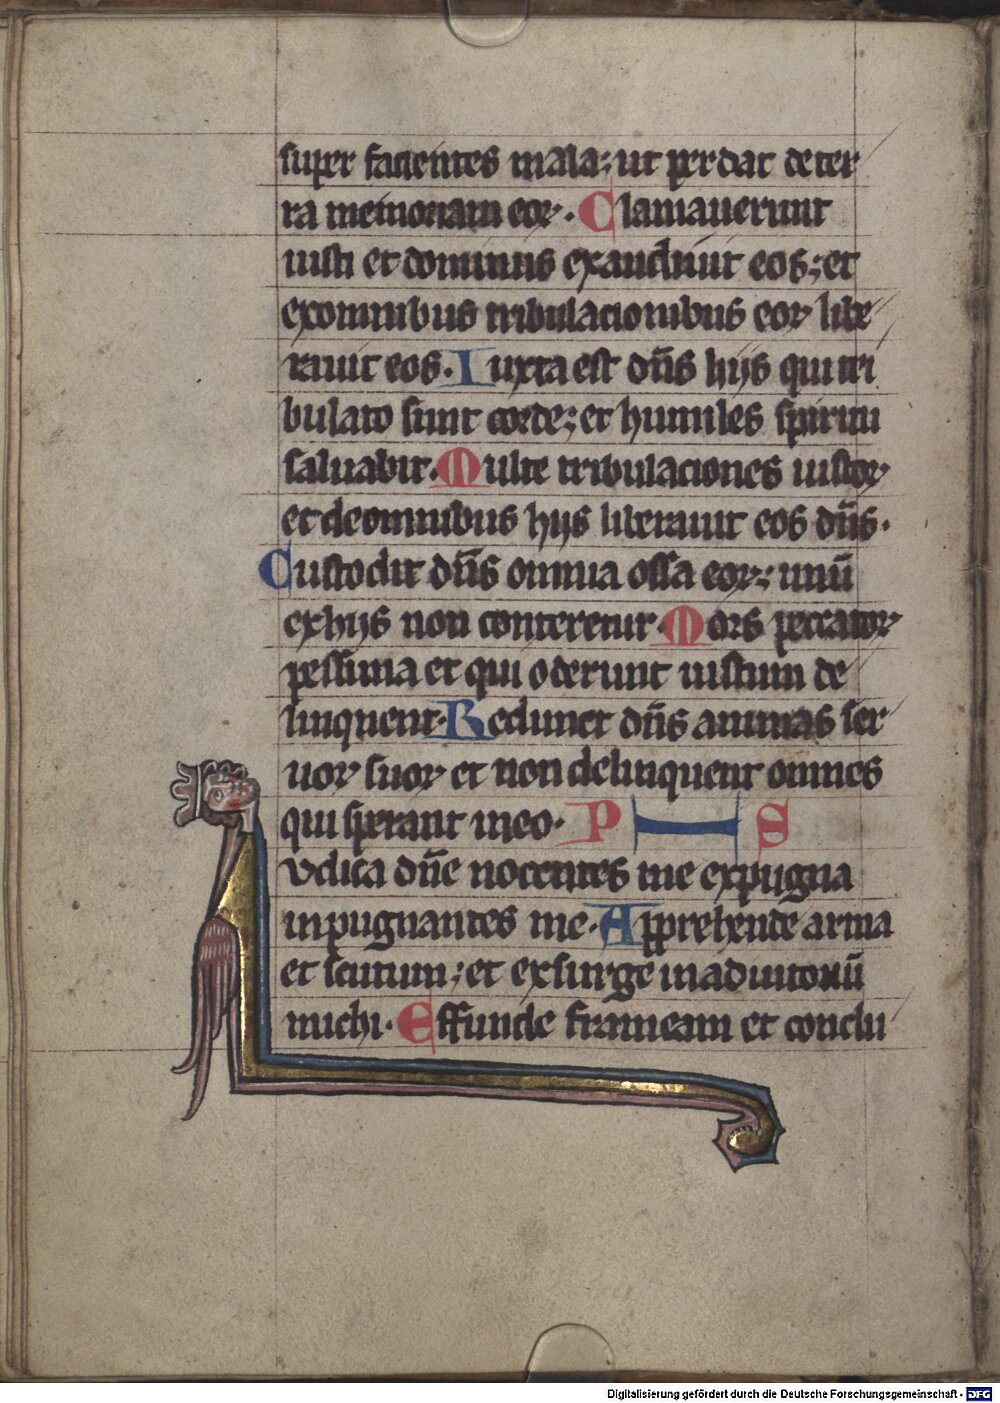 super facientes mala; ut perdat de ter
ra memoriam eoꝝ. Clamauerunt
iusti et dominus exaudiuit eos; et
ex omnibus tribulacionibus eoꝝ libe
rauit eos. Iuxta est dn̄s hijs qui tri
bulato sunt corde; et humiles spiritu
saluabit. Multe tribulaciones iustoꝝ
et de omnibus hijs liberauit eos dn̄s.
Custodit dn̄s omnia ossa eoꝝ; unū
ex hijs non conteretur. Mors peccatoꝝ
pessima et qui oderunt iustum de
linquent. Redimet dn̄s animas ser
uoꝝ suoꝝ et non delinquent omnes
qui sperant in eo. PS
Vdica dn̄e nocentes me expugna
inpugnantes me. Apprehende arma
et scutum; et exsurge in adiutoriū
michi. Effunde frameam et conclu
Digitalisierung gefördert durch die Deutsche Forschungsgemeinschaft - DFG